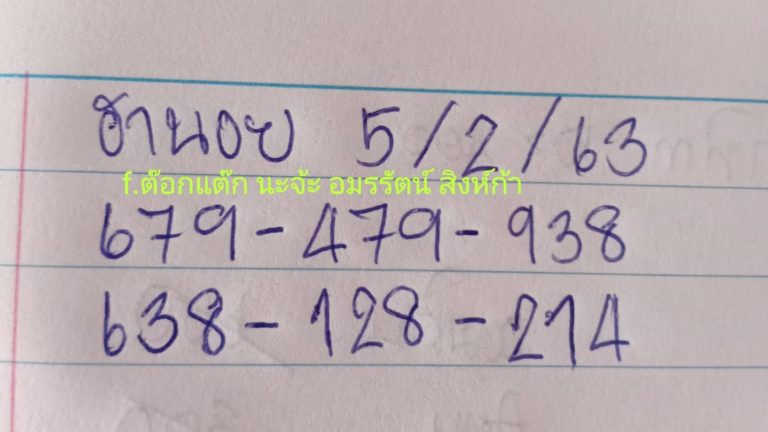 ฮานอย 5/2/63
f.ต๊อกแต๊ก นะจ้ะ อมรรัตน์ สิงห์ก้า
679-479-938
638-128-214